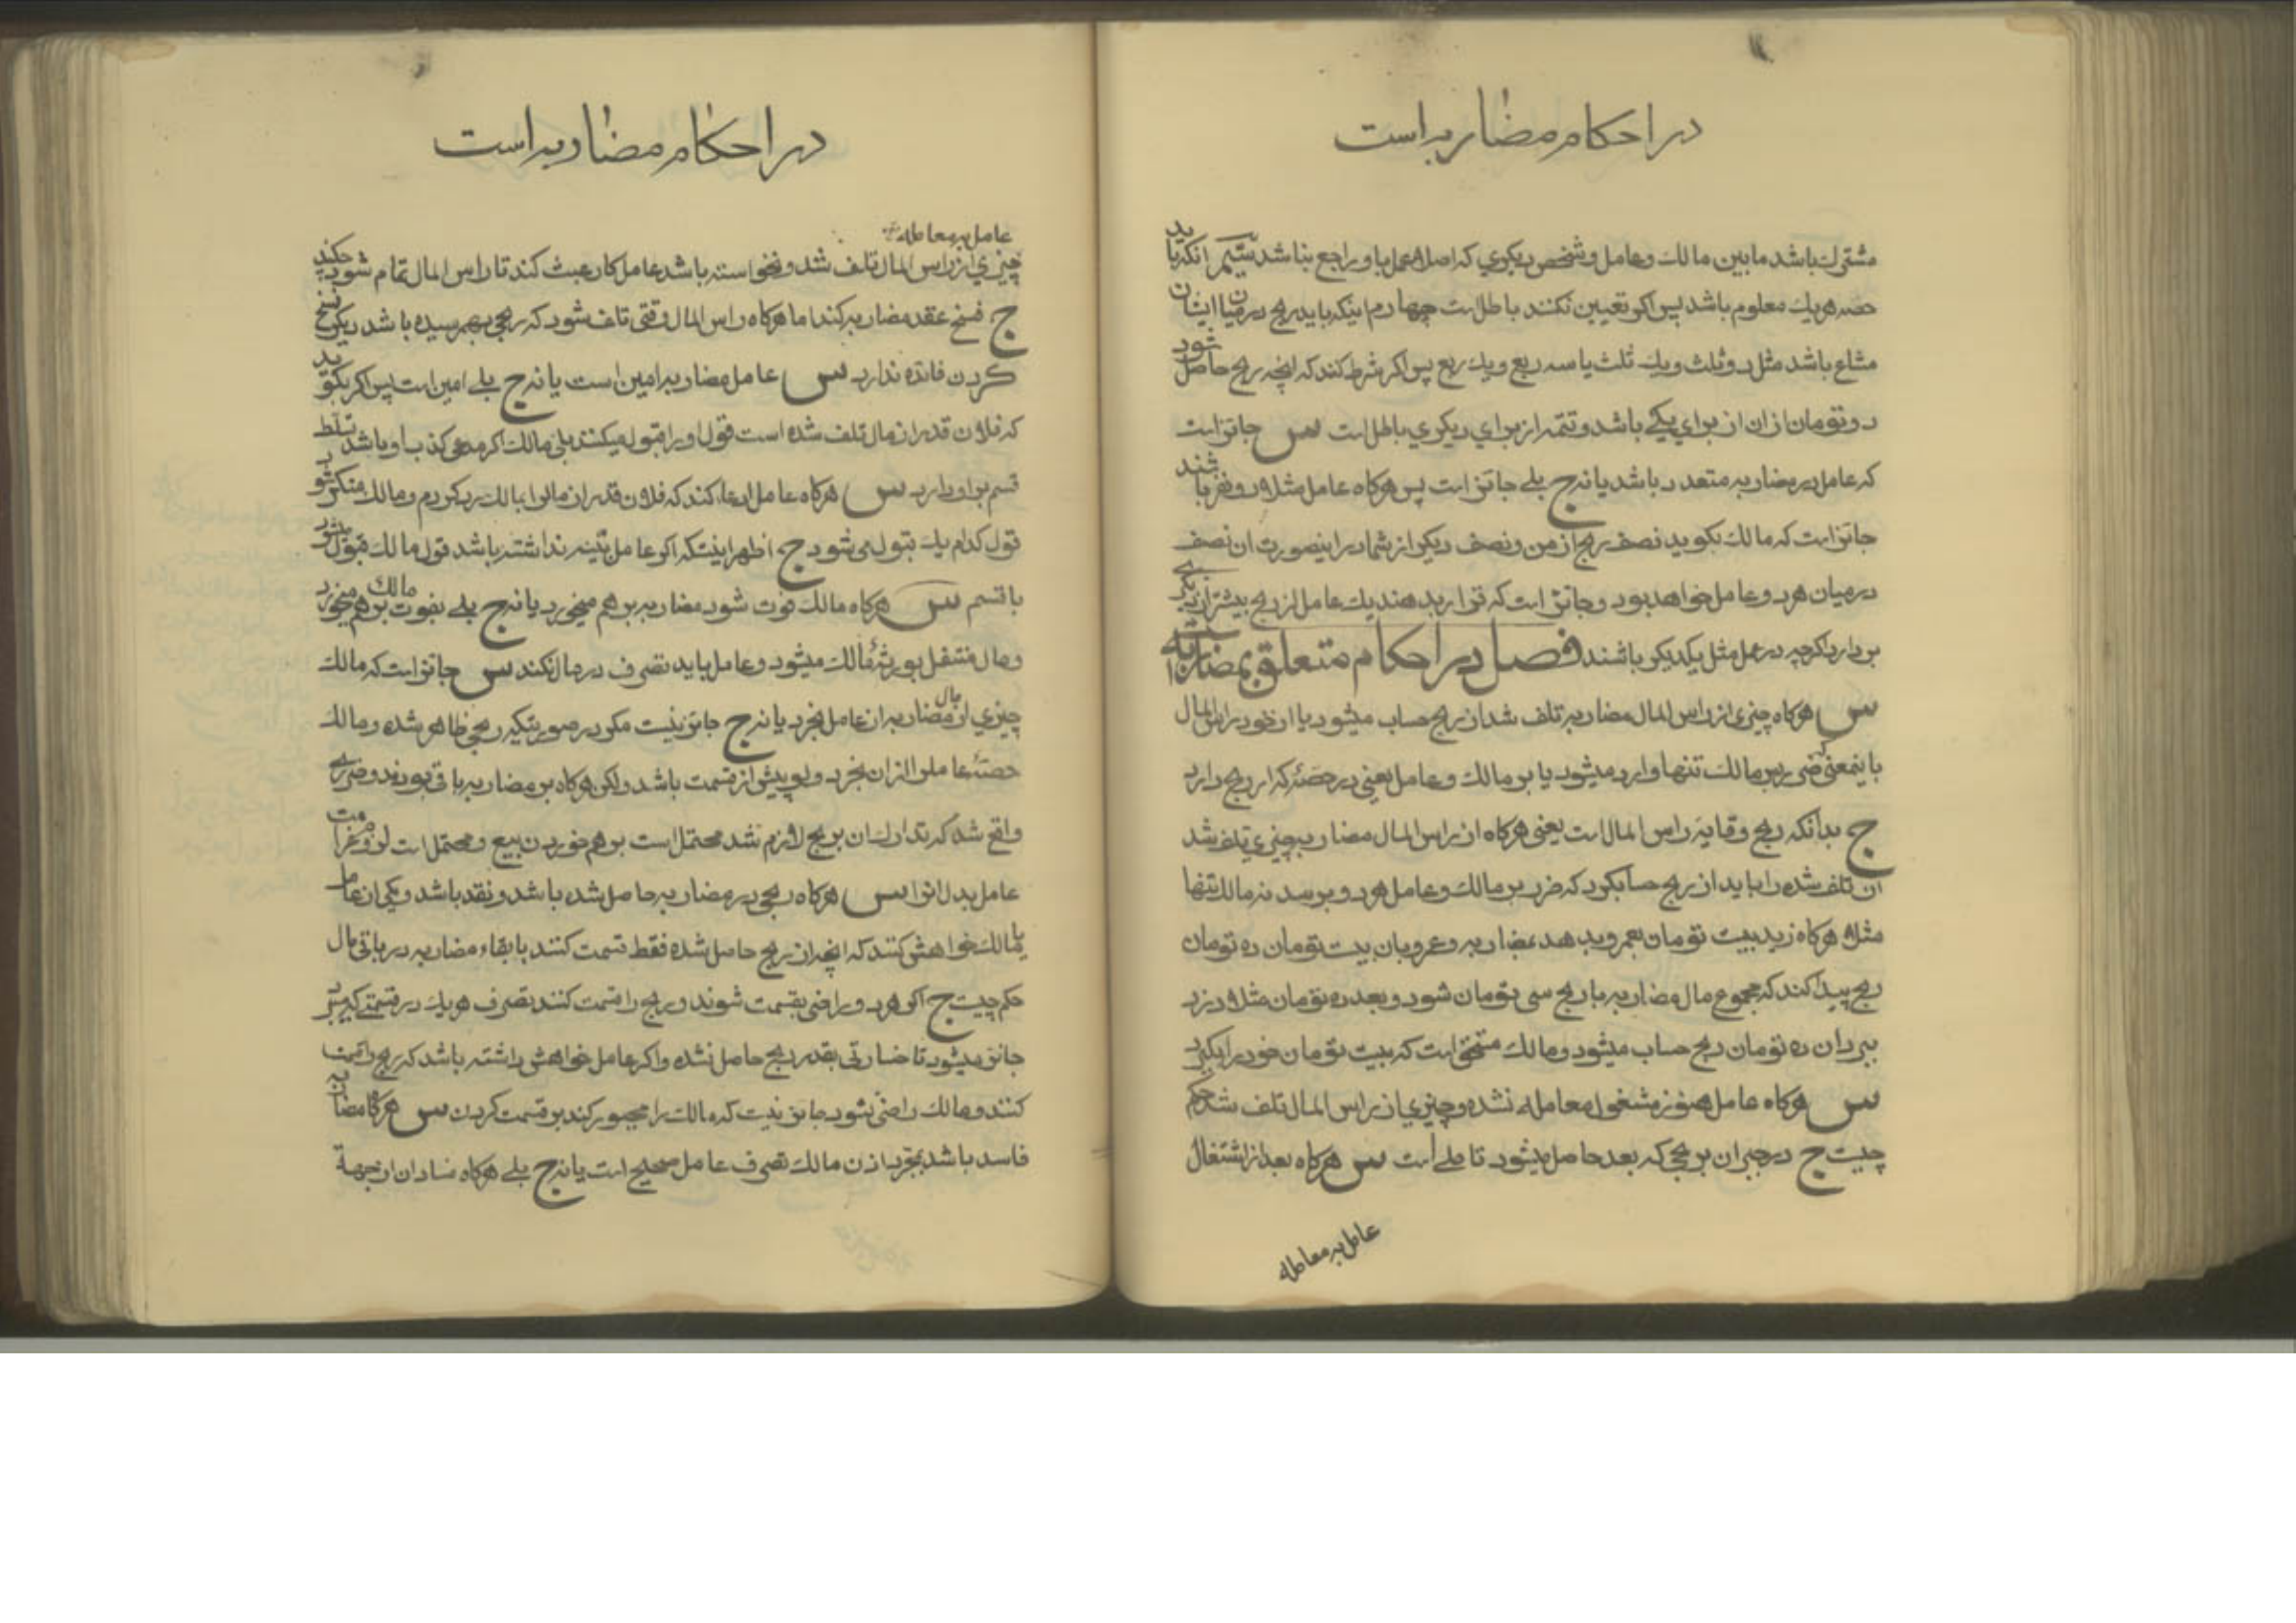 در احکام مضاربه است
مشترک باشد مابین مالک و عامل و شخص دیگری که اصلا عمل باو راجع نباشد سیّم انکه باید
حصه هر یک معلوم باشد پس اکر تعیین نکنند باطل است چهارم اینکه باید ربح در میان ایشان
مشاع باشد مثل دو ثلث و یک ثلث یا سه ربع و یک ربع پس اکر شرط کنند که انچه ربح حاصل شود
دو تومان از ان از برای یکی باشد و تتمه از برای دیکری باطل است س جائز است
که عامل در مضاربه متعدد باشد یا نه ج بلی جائز است پس هرکاه عامل مثلا دو نفر باشند
جائز است که مالک بکوید نصف ربح از من و نصف دیکر از شما در اینصورت ان نصف
در میان هر دو عامل خواهد بود و جائز است که قرار بدهند یک عامل از ربح بیشتر از دیکری
بردارد اکرچه در عمل مثل یکدیکر باشند فصل در احکام متعلق بمضاربه است
س هرکاه چیزی از راس المال مضاربه تلف شد از ربح حساب میشود یا از خود راس المال
باینمعنی که ضرر بر مالک تنها وارد میشود یا بر مالک و عامل یعنی در حصّه که از ربح دارد
ج بدانکه ربح وقایه راس المال است یعنی هرکاه از راس المال مضاربه چیزی تلف شد
ان تلف شده را باید از ربح حساب کرد که ضرر بر مالک و عامل هر دو برسد نه مالک تنها
مثلا هرکاه زید بیست تومان بعمرو بدهد بمضاربه و عمرو بان بیست تومان ده تومان
ربح پیدا کند که مجموع مال مضاربه با ربح سی تومان شود و بعد ده تومان مثلا دزد
ببرد ان ده تومان ربح حساب میشود و مالک مستحق است که بیست تومان خود را بکیرد
س هرکاه عامل هنوز مشغول معامله نشده و چیزی از راس المال تلف شد حکم
چیست ج در جبران بربحی که بعد حاصل میشود تاملی است س هرکاه بعد از اشتغال
عامل به معامله
در احکام مضاربه است
عامل به معامله
چیزی از راس المال تلف شد و نخواسته باشد عامل کار عبث کند تا راس المال تمام شود چکند
ج فسخ عقد مضاربه کند اما هرکاه راس المال وقتی تلف شود که ربحی بهم رسیده باشد دیکر فسخ
کردن فائده ندارد س عامل مضاربه امین است یا نه ج بلی امین است پس اکر بکوید
که فلان قدر از مال تلف شده است قول او را قبول میکنند بلی مالک اکر مدعی کذب او باشد تسلط
قسم بر او دارد س هرکاه عامل ادعا کند که فلان قدر از مال را بمالک رد کردم و مالک منکر شود
قول کدام یک قبول می شود ج اظهر اینستکه اکر عامل بیّنه نداشته باشد قول مالک قبول میشود
با قسم س هرکاه مالک فوت شود مضاربه بر هم میخورد یا نه ج بلی بفوت مالک بر هم میخورد
و مال منتقل بورثهٔ مالک میشود و عامل باید تصرف در مال نکند س جائز است که مالک
چیزی از مال مضاربه از عامل بخرد یا نه ج جائز نیست مکر در صورتیکه ربحی ظاهر شده و مالک
حصّهٔ عامل را از ان بخرد ولو پیش از قسمت باشد ولکن هرکاه بر مضاربه باقی بودند و ضرری
واقع شد که تدارک ان بربح لازم شد محتمل است بر هم خوردن بیع و محتمل است لزوم غرامت
عامل بدل انرا س هرکاه ربحی در مضاربه حاصل شده باشد و نقد باشد و یکی از عامل
یا مالک خواهش کنند که انچه از ربح حاصل شده فقط قسمت کنند با بقاء مضاربه در باقی مال
حکم چیست ج اکر هر دو راضی بقسمت شوند و ربح را قسمت کنند تصرف هر یک در قسمتی که میبرد
جائز میشود تا خسارتی بقدر ربح حاصل نشده و اکر عامل خواهش داشته باشد که ربح را قسمت
کنند و مالک راضی نشود جائز نیست که مالک را مجبور کند بر قسمت کردن س هرکاه مضاربه
فاسد باشد بمجرد اذن مالک تصرف عامل صحیح است یا نه ج بلی هرکاه فساد ان از جهة